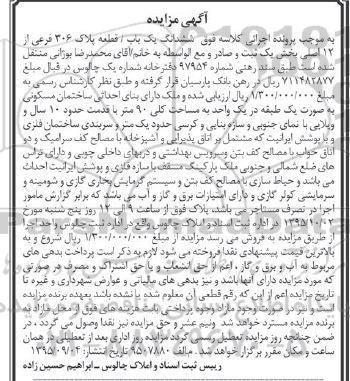 آگهی مزایده
به موجب پرونده اجرائی کلاسه فوق ششدانگ یک باب / قطعه پلاک ۳۰۶ فرعی از
۱۲ اصلی بخش یک ثبت و صادر و مع الواسطه به خانم/آقای محمدرضا یوزانی منتقل
شده است طبق سند رهنی شماره ۹۷۹۵۴ دفترخانه شماره یک چالوس در قبال مبلغ
۷۱۱۴۸۲۸۷۷ ریال در رهن بانک پارسیان قرار گرفته و طبق نظر کارشناس رسمی به
مبلغ ۱/۳۰۰/۰۰۰/۰۰۰ ریال ارزیابی شده و ملک دارای بنای احداثی ساختمان مسکونی
به صورت یک طبقه در یک واحد به مساحت کلی ۹۰ متر با قدمت حدود ۱۰ سال و
ویلایی با نمای جنوبی و سازه بنایی و کرسی حدود یک متر و سربندی ساختمان فلزی
و با پوشش ایرانیت که مشتمل بر اتاق پذیرایی و آشپزخانه با مصالح کف سرامیک و دو
اتاق خواب با مصالح کف بتن وسرویس بهداشتی و دربهای داخلی چوبی و دارای تراس
های ضلع شمالی و جنوبی ملک پارکینگ مسقف با سازه فلزی و پوشش ایرانیت احداث
می باشد و حیاط سازی با مصالح کف بتن و سیستم گرمایش بخاری گازی و شومینه و
سرمایشی کولر گازی و دارای امتیازات برق و گاز و آب می باشد که برابر گزارش مامور
اجرا در تصرف مستاجر می باشد، پلاک فوق از ساعت ۹ الی ۱۲ روز پنج شنبه مورخ
در اداره ثبت اسناد و املاک چالوس واقع در اداره ثبت چالوس واحد اجرا
از طریق مزایده به فروش می رسد مزایده از مبلغ ۱/۳۰۰/۰۰۰/۰۰۰ ریال شروع و به
بالاترین قیمت پیشنهادی نقدا فروخته می شود لازم به ذکر است پرداخت بدهی های
مربوط به آب و برق و گاز ، اعم از حق انشعاب و یا حق اشتراک و مصرف در صورتی
که مورد مزایده دارای آنها باشد و نیز بدهی های مالیاتی و عوارض شهرداری و غیره تا
تاریخ مزایده اعم از این که رقم قطعی آن معلوم شده یا نشده باشد بعهده برنده مزایده
است و نیز در صورت وجود مازاد وجوه پرداختی بابت هزینه های فوق از محل مازاد به
برنده مزایده مسترد خواهد شد ونیم عشر و حق مزایده نیز نقدا وصول می گردد ، در
ضمن چنانچه روز مزایده تعطیل رسمی گردد مزایده روز اداری بعد از تعطیلی در همان
ساعت و مکان مقرر برگزار خواهد شد . م الف ۹۵۰۷۸۸۰ تاریخ انتشار: ۱۳۹۵/۰۹/۰۴
رییس ثبت اسناد و املاک چالوس ـ ابراهیم حسین زاده